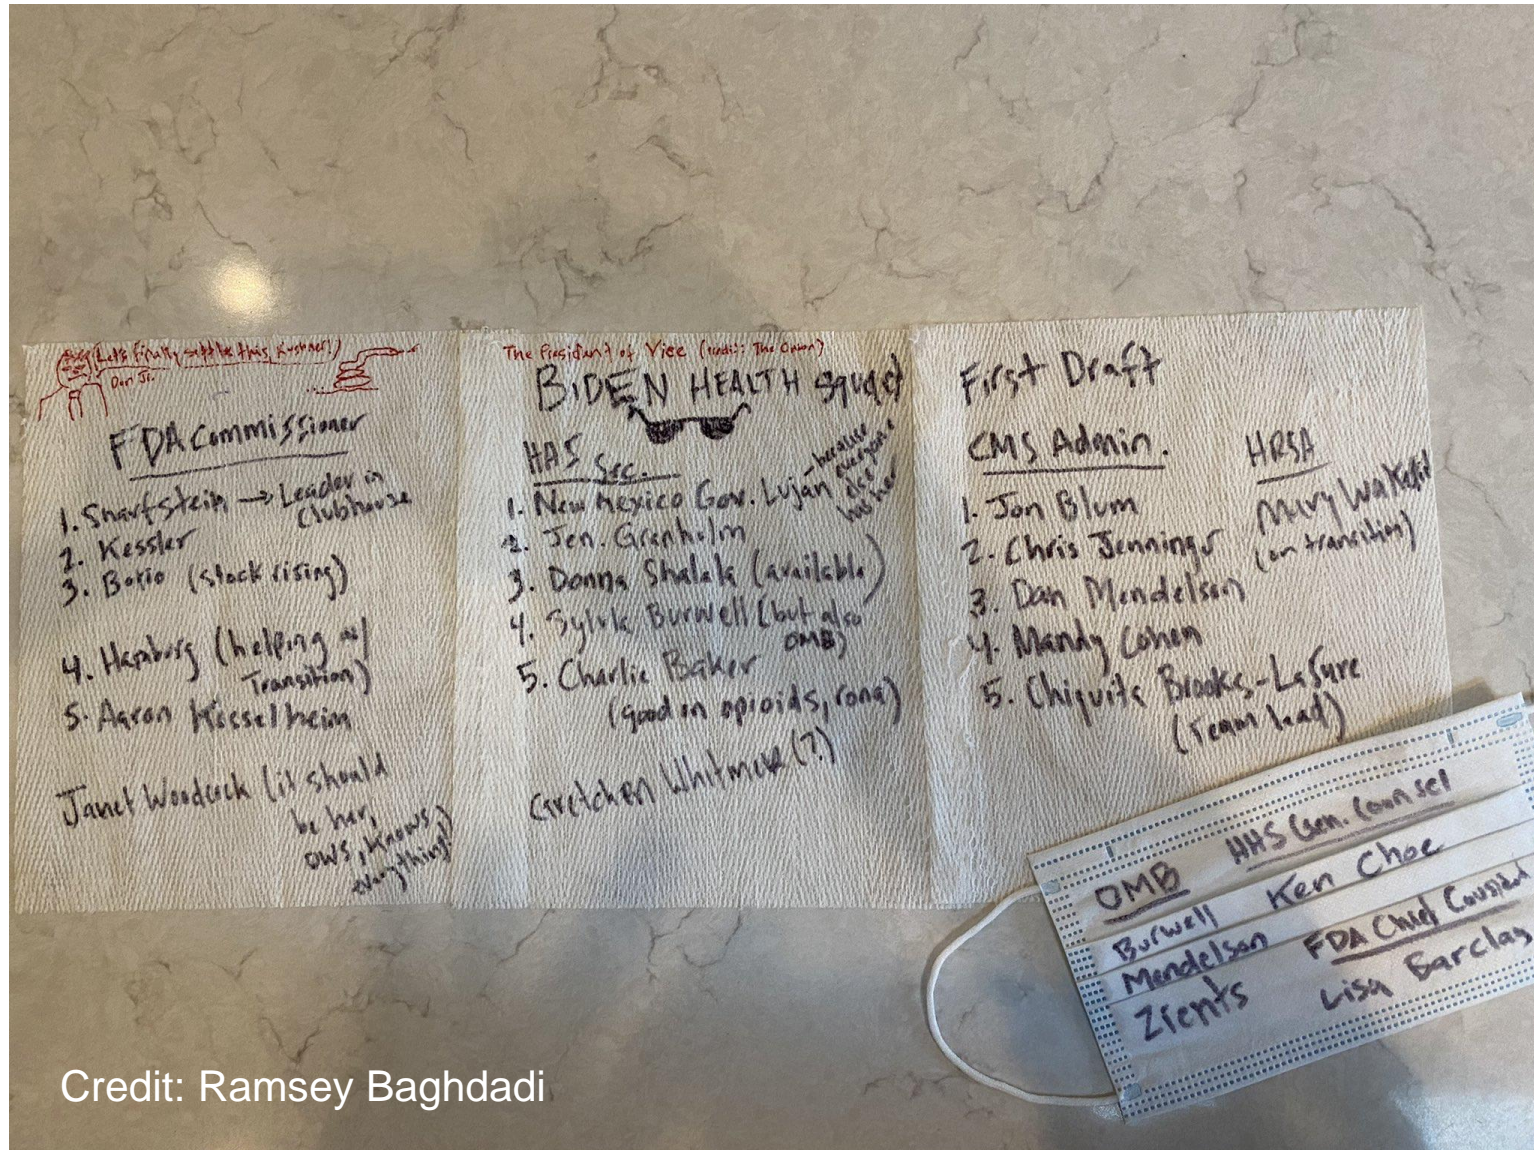 (Let's finally settle this, Kushner!)
Don Jr.
FDA Commissioner
1. Sharfstein → Leader in
Clubhouse
2. Kessler
3. Borio (stock rising)
4. Hamburg (helping w/
Transition)
5. Aaron Kesselheim
Janet Woodcock (it should
be her,
OWS, knows
everything)
The President of Vice (credit: The Onion)
BIDEN HEALTH Squad
HHS Sec.
1. New Mexico Gov. Luján - because
everyone
else
has her
2. Jen. Granholm
3. Donna Shalala (available)
4. Sylvia Burwell (but also
OMB)
5. Charlie Baker
(good on opioids, rona)
Gretchen Whitmer (?)
First Draft
CMS Admin.
1. Jon Blum
2. Chris Jennings
3. Dan Mendelson
4. Mandy Cohen
5. Chiquita Brooks-LaSure
(Team lead)
HRSA
Mary Wakefield
(on transition)
OMB
Burwell
Mendelson
Zients
HHS Gen. Counsel
Ken Choe
FDA Chief Counsel
Lisa Barclay
Credit: Ramsey Baghdadi